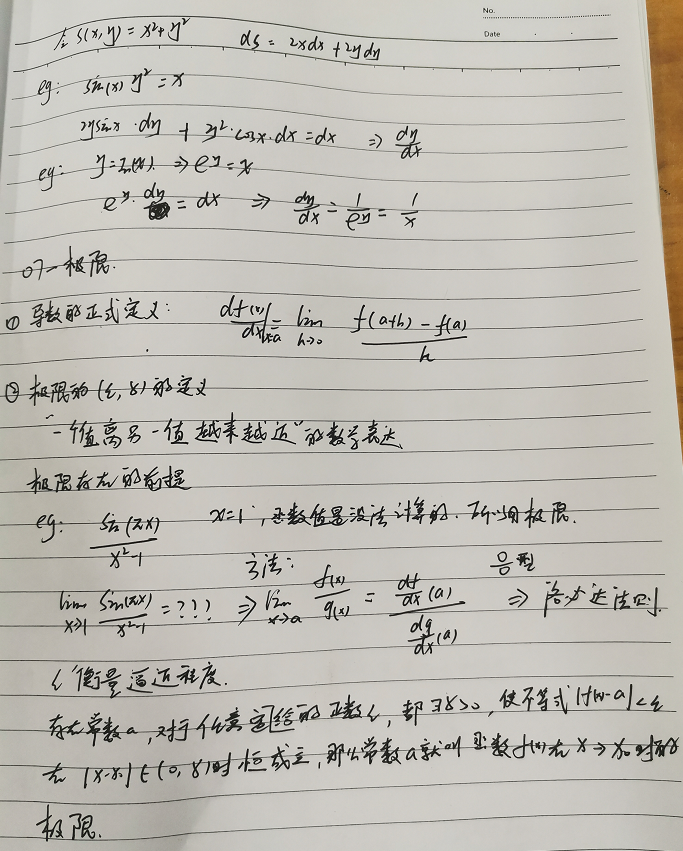 No.
Date
S(x,y) = x²+y² ds = 2xdx+2ydy
eg: sin(x) y² = x
2ysinx·dy + y²·cosx·dx = dx ⇒ dy/dx
eg: y=ln(x). ⇒ e^y = x
e^y · dy = dx ⇒ dy/dx = 1/e^y = 1/x
07-极限.
① 导数的正式定义: df(x)/dx|x=a = lim h→0 (f(a+h)-f(a))/h
② 极限的(ε,δ)的定义
"一个值离另一值越来越近"的数学表达
极限存在的前提
eg: sin(πx)/(x²-1) x=1, 函数值是没法计算的. 所以用极限.
方法: 0/0型
lim x→1 sin(πx)/(x²-1) = ??? ⇒ lim x→a f(x)/g(x) = df/dx(a) / dg/dx(a) ⇒ 洛必达法则.
ε"衡量逼近程度.
存在常数a,对于任意给的正数ε,都∃δ>0,使不等式|f(x)-a|<ε
在|x-x₀|∈(0,δ)时恒成立,那么常数a就叫函数f(x)在x→x₀时的
极限.